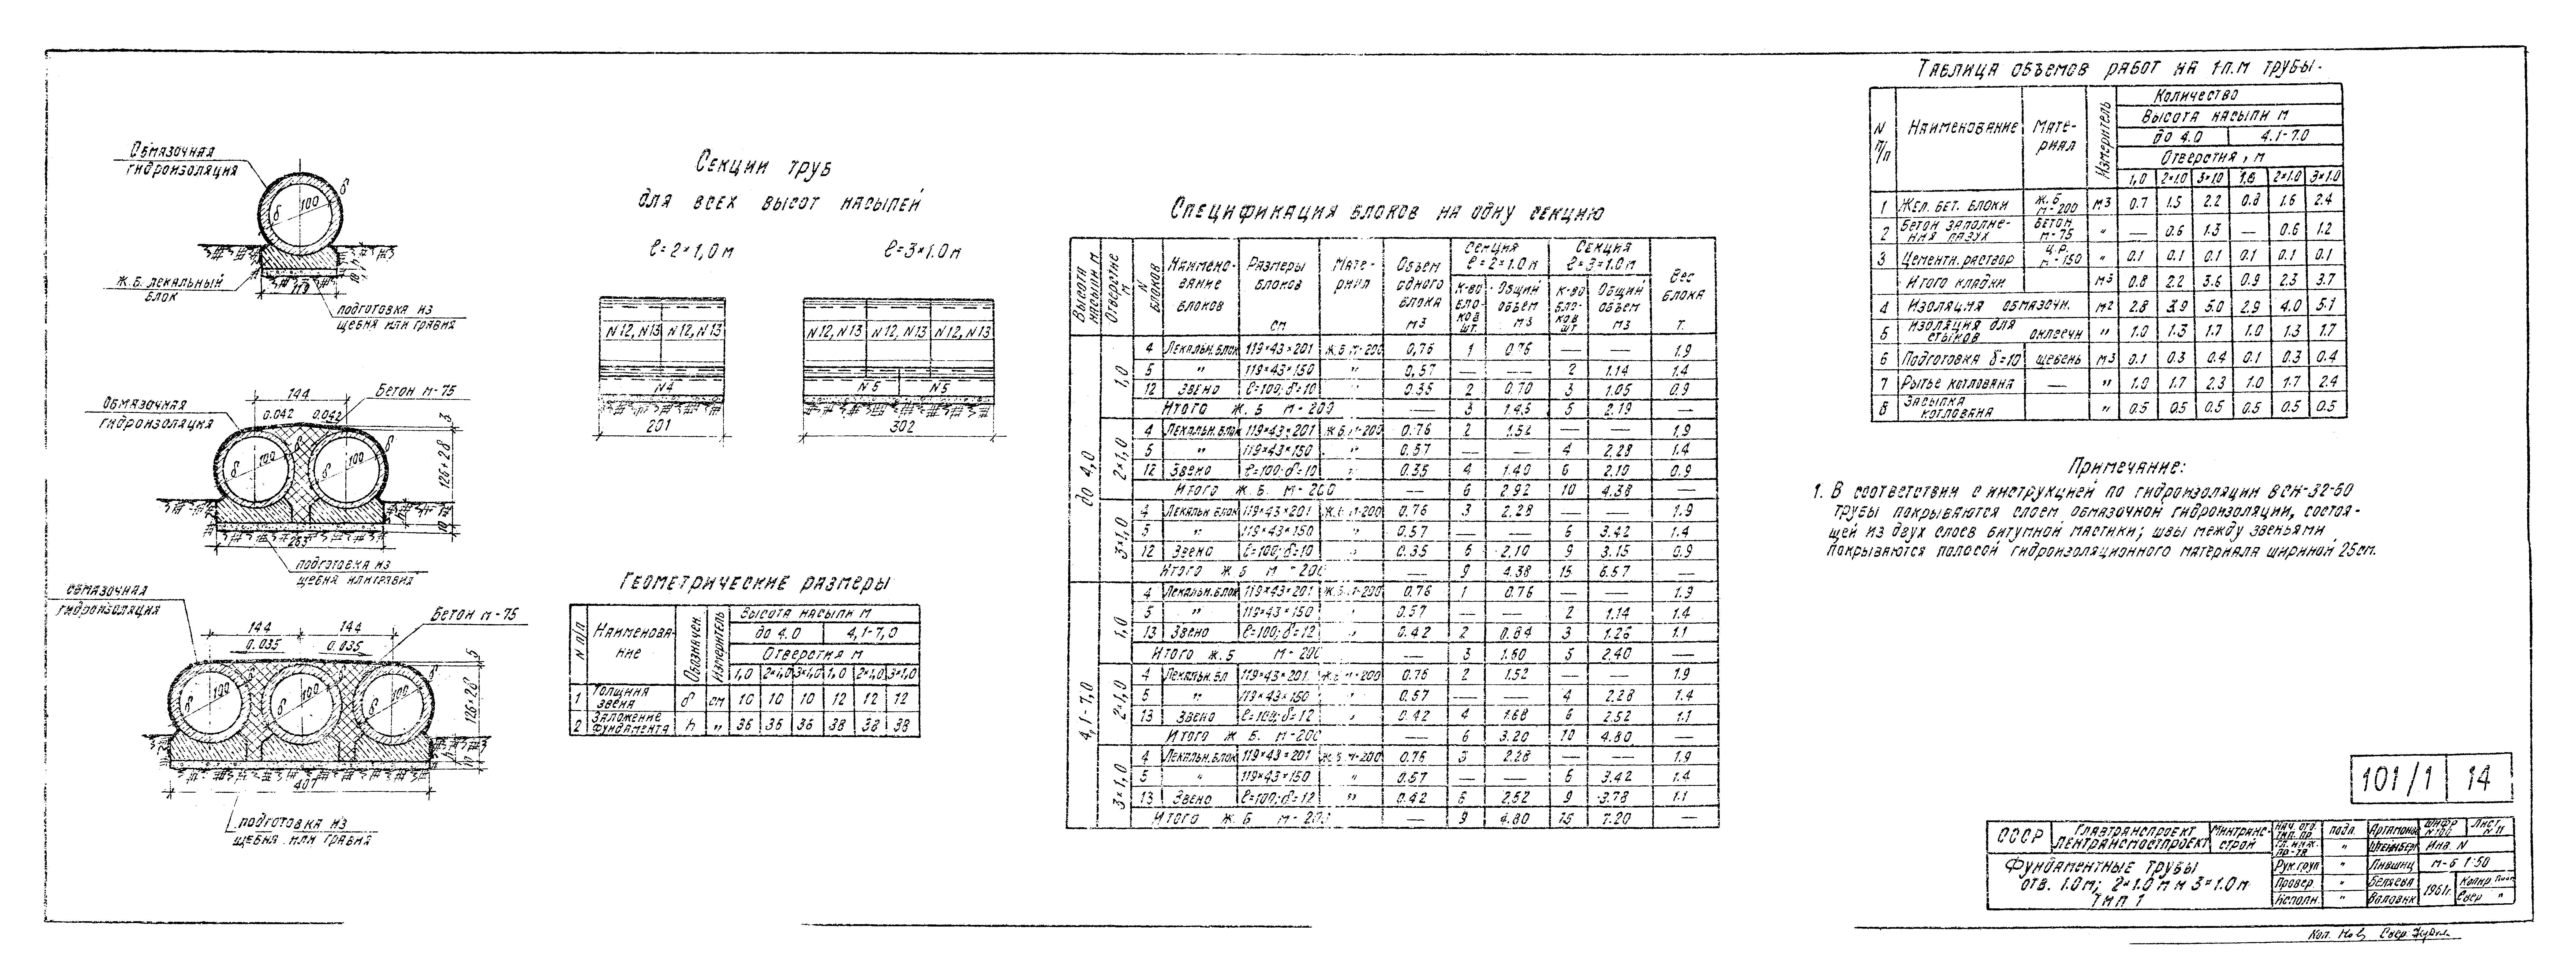 Обмазочная
гидроизоляция
δ
δ
100
Ж.Б. лекальный
блок
119
подготовка из
щебня или гравия
144
Бетон м-75
Обмазочная
гидроизоляция
0.042 0.042
3
δ 100 δ 100 δ
126+2δ
10
263
подготовка из
щебня или гравия
обмазочная
гидроизоляция
144 144
Бетон м-75
0.035 0.035
5
δ 100 100 δ 100
126+2δ
10
407
подготовка из
щебня или гравия
Секции труб
для всех высот насыпей
ℓ=2×1,0м
ℓ=3×1.0м
N12, N13 N12, N13
N4
201
N12, N13 N12, N13 N12, N13
N5 N5
302
Геометрические размеры
N п/п Наименова-ние Обозначен. Измеритель Высота насыпи м
до 4.0 4,1-7,0
Отверстия м
1,0 2×1,0 3×1,0 1,0 2×1,0 3×1,0
1 Толщина звена δ см 10 10 10 12 12 12
2 Заложение фундамента h „ 36 36 36 38 38 38
Спецификация блоков на одну секцию
Высота насыпи м Отверстие м N блоков Наимено-вание блоков Размеры блоков см Мате-риал Объем одного блока м3 Секция ℓ=2×1.0м Секция ℓ=3×1.0м Вес блока т.
К-во бло-ков шт. Общий объем м3 К-во бло-ков шт Общий объем м3
до 4,0
1,0
4 Лекальн.блок 119×43×201 Ж.Б м-200 0,76 1 0.76 — — 1.9
5 „ 119×43×150 „ 0,57 — — 2 1.14 1.4
12 Звено ℓ=100; δ=10 0.35 2 0.70 3 1.05 0.9
Итого Ж.Б м-200 — 3 1.45 5 2.19 —
2×1,0
4 Лекальн.блок 119×43×201 Ж.Б м-200 0.76 2 1.52 — — 1,9
5 „ 119×43×150 „ 0.57 — — 4 2.28 1.4
12 Звено ℓ=100; δ=10 „ 0.35 4 1.40 6 2.10 0.9
Итого Ж.Б. м-200 — 6 2.92 10 4.38 —
3×1,0
4 Лекальн блок 119×43×201 Ж.Б м-200 0.76 3 2.28 — — 1.9
5 „ 119×43×150 „ 0.57 — — 6 3.42 1.4
12 Звено ℓ=100; δ=10 „ 0.35 6 2.10 9 3.15 0.9
Итого Ж Б м-200 — 9 4.38 15 6.57 —
4,1-7,0
1,0
4 Лекальн.блок 119×43×201 Ж.Б м-200 0.76 1 0.76 — — 1.9
5 „ 119×43×150 „ 0.57 — — 2 1.14 1.4
13 Звено ℓ=100; δ=12 „ 0.42 2 0.84 3 1.26 1.1
Итого Ж.Б м-200 — 3 1.60 5 2.40 —
2×1,0
4 Лекальн.бл 119×43×201 Ж.Б м-200 0.76 2 1.52 — — 1.9
5 „ 119×43×150 „ 0.57 — — 4 2.28 1.4
13 Звено ℓ=100; δ=12 „ 0.42 4 1.68 6 2.52 1.1
Итого Ж Б. м-200 — 6 3.20 10 4.80 —
3×1,0
4 Лекальн.блок 119×43×201 Ж.Б м-200 0.76 3 2.28 — — 1.9
5 „ 119×43×150 „ 0.57 — — 6 3.42 1.4
13 Звено ℓ=100; δ=12 „ 0.42 6 2.52 9 3.78 1.1
Итого Ж Б м-200 — 9 4.80 15 7.20 —
Таблица объемов работ на 1п.м трубы.
N п/п Наименование Мате-риал Измеритель Количество
Высота насыпи м
до 4.0 4.1-7.0
Отверстия, м
1,0 2×1.0 3×1.0 1,0 2×1.0 3×1.0
1 Жел. бет. блоки Ж.Б м-200 м3 0.7 1.5 2.2 0.8 1.6 2.4
2 Бетон заполне-ния пазух Бетон м-75 „ — 0.6 1.3 — 0.6 1.2
3 Цементн. раствор Ц.Р. м-150 „ 0.1 0.1 0.1 0.1 0.1 0.1
Итого кладки м3 0.8 2.2 3.6 0.9 2.3 3.7
4 Изоляция обмазочн. м2 2.8 3.9 5.0 2.9 4.0 5.1
5 Изоляция для стыков оклеечн „ 1.0 1.3 1.7 1.0 1.3 1.7
6 Подготовка δ=10 щебень м3 0.1 0.3 0.4 0.1 0.3 0.4
7 Рытье котлована — „ 1.0 1.7 2.3 1.0 1.7 2.4
8 Засыпка котлована „ 0.5 0.5 0.5 0.5 0.5 0.5
Примечание:
1. В соответствии с инструкцией по гидроизоляции ВСН-32-60
трубы покрываются слоем обмазочной гидроизоляции, состоя-
щей из двух слоев битумной мастики; швы между звеньями
покрываются полосой гидроизоляционного материала шириной 25см.
101/1 14
СССР Главтранспроект Ленгипротрансмост Минтранс-строй
Фундаментные трубы
отв. 1.0м; 2×1.0м и 3×1.0м
Тип 1
Нач. отд. тип. пр. подп. Артамонов Шифр Лист N 11
Гл. инж. пр-та „ Штейнберг Инв. N
Рук.груп „ Лившиц М-б 1:50
Провер. „ Беляева 1961г. Копир
Исполн. „ Свер „
Коп. Свер.